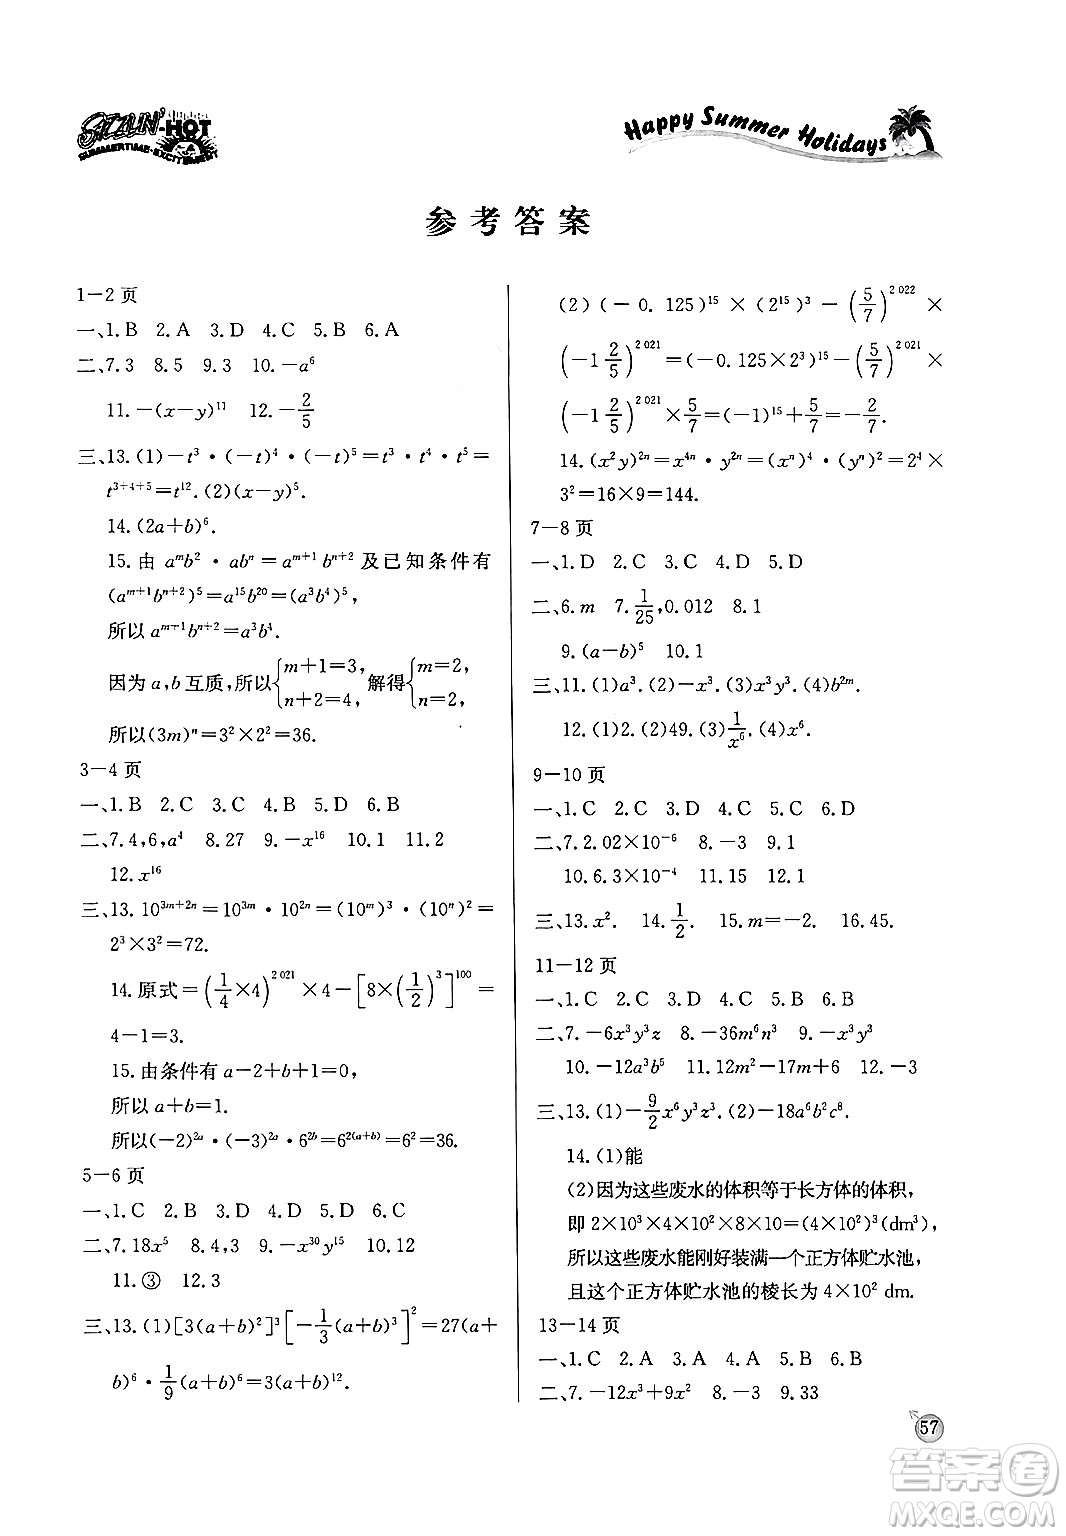 SIZZLIN'-HOT
SUMMERTIME·EXCITEMENT
Happy Summer Holidays
参考答案
1－2 页
一、1.B 2.A 3.D 4.C 5.B 6.A
二、7.3 8.5 9.3 10.－a⁶
11.－(x－y)¹¹ 12.－2/5
三、13.(1)－t³·(－t)⁴·(－t)⁵＝t³·t⁴·t⁵＝
t³⁺⁴⁺⁵＝t¹².(2)(x－y)⁵.
14.(2a＋b)⁶.
15.由 aᵐb²·abⁿ＝aᵐ⁺¹bⁿ⁺²及已知条件有
(aᵐ⁺¹bⁿ⁺²)⁵＝a¹⁵b²⁰＝(a³b⁴)⁵,
所以 aᵐ⁺¹bⁿ⁺²＝a³b⁴.
因为 a,b 互质,所以{m＋1＝3, n＋2＝4, 解得{m＝2, n＝2,
所以(3m)ⁿ＝3²×2²＝36.
3－4 页
一、1.B 2.C 3.C 4.B 5.D 6.B
二、7.4,6,a⁴ 8.27 9.－x¹⁶ 10.1 11.2
12.x¹⁶
三、13.10³ᵐ⁺²ⁿ＝10³ᵐ·10²ⁿ＝(10ᵐ)³·(10ⁿ)²＝
2³×3²＝72.
14.原式＝(1/4×4)²⁰²¹×4－[8×(1/2)³]¹⁰⁰＝
4－1＝3.
15.由条件有 a－2＋b＋1＝0,
所以 a＋b＝1.
所以(－2)²ᵃ·(－3)²ᵃ·6²ᵇ＝6²⁽ᵃ⁺ᵇ⁾＝6²＝36.
5－6 页
一、1.C 2.D 3.B 4.B 5.D 6.C
二、7.18x⁵ 8.4,3 9.－x³⁰y¹⁵ 10.12
11.③ 12.3
三、13.(1)[3(a＋b)²]³[－1/3(a＋b)³]²＝27(a＋
b)⁶·1/9(a＋b)⁶＝3(a＋b)¹².
(2)(－0.125)¹⁵×(2¹⁵)³－(5/7)²⁰²²×
(－1 2/5)²⁰²¹＝(－0.125×2³)¹⁵－(5/7)²⁰²¹×
(－1 2/5)²⁰²¹×5/7＝(－1)¹⁵＋5/7＝－2/7.
14.(x²y)²ⁿ＝x⁴ⁿ·y²ⁿ＝(xⁿ)⁴·(yⁿ)²＝2⁴×
3²＝16×9＝144.
7－8 页
一、1.D 2.C 3.D 4.D 5.D
二、6.m 7.1/25,0.012 8.1
9.(a－b)⁵ 10.1
三、11.(1)a³.(2)－x³.(3)x³y³.(4)b²ᵐ.
12.(1)2.(2)49.(3)1/x⁶.(4)x⁶.
9－10 页
一、1.C 2.C 3.B 4.A 5.C 6.D
二、7.2.02×10⁻⁶ 8.－3 9.1
10.6.3×10⁻⁴ 11.15 12.1
三、13.x². 14.1/2. 15.m＝－2. 16.45.
11－12 页
一、1.D 2.C 3.D 4.C 5.B 6.B
二、7.－6x³y³z 8.－36m⁶n³ 9.－x³y³
10.－12a³b⁵ 11.12m²－17m＋6 12.－3
三、13.(1)－9/2x⁶y³z³.(2)－18a⁶b²c⁸.
14.(1)能
(2)因为这些废水的体积等于长方体的体积,
即 2×10³×4×10²×8×10＝(4×10²)³(dm³),
所以这些废水能刚好装满一个正方体贮水池,
且这个正方体贮水池的棱长为 4×10² dm.
13－14 页
一、1.C 2.A 3.A 4.A 5.B 6.B
二、7.－12x³＋9x² 8.－3 9.33
57
答案圈
MXQE.COM